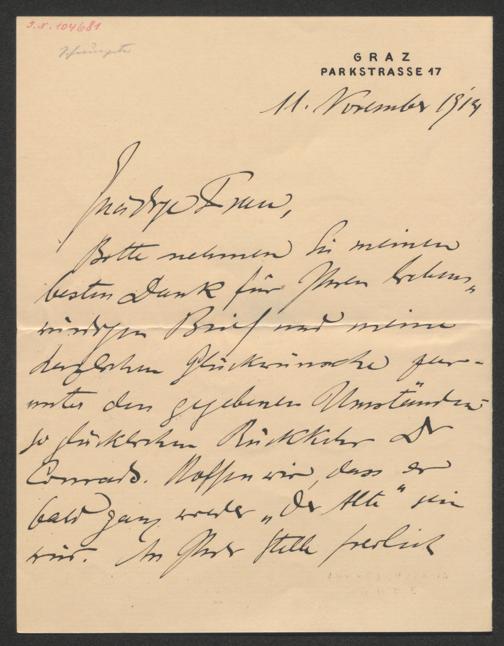 J.N. 104681
Schumpeter
GRAZ
PARKSTRASSE 17
11. November 1914
Gnädige Frau,
Bitte nehmen Sie meinen
besten Dank für Ihren liebens„
würdigen Brief und meine
herzlichen Glückwünsche zur
unter den gegebenen Umständen
so glücklichen Rückkehr Dr
Conrads. Hoffen wir, dass er
bald ganz wieder „der Alte“ sein
wird. An Ihrer Stelle freilich